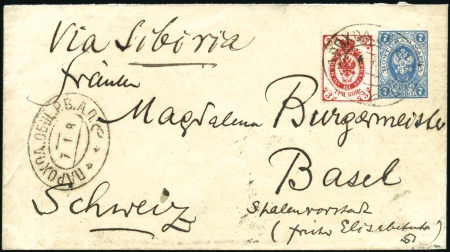 Via Sibiria
Fräulein
Magdalena Burgermeister
Basel
Schweiz
Spalenvorstadt
(früher Elisabethenstr
ПАРОХОД. ОБЩ. Р.Б.А.П.
7 1 9
3
3
ТРИ КОП.
7
7
7
7